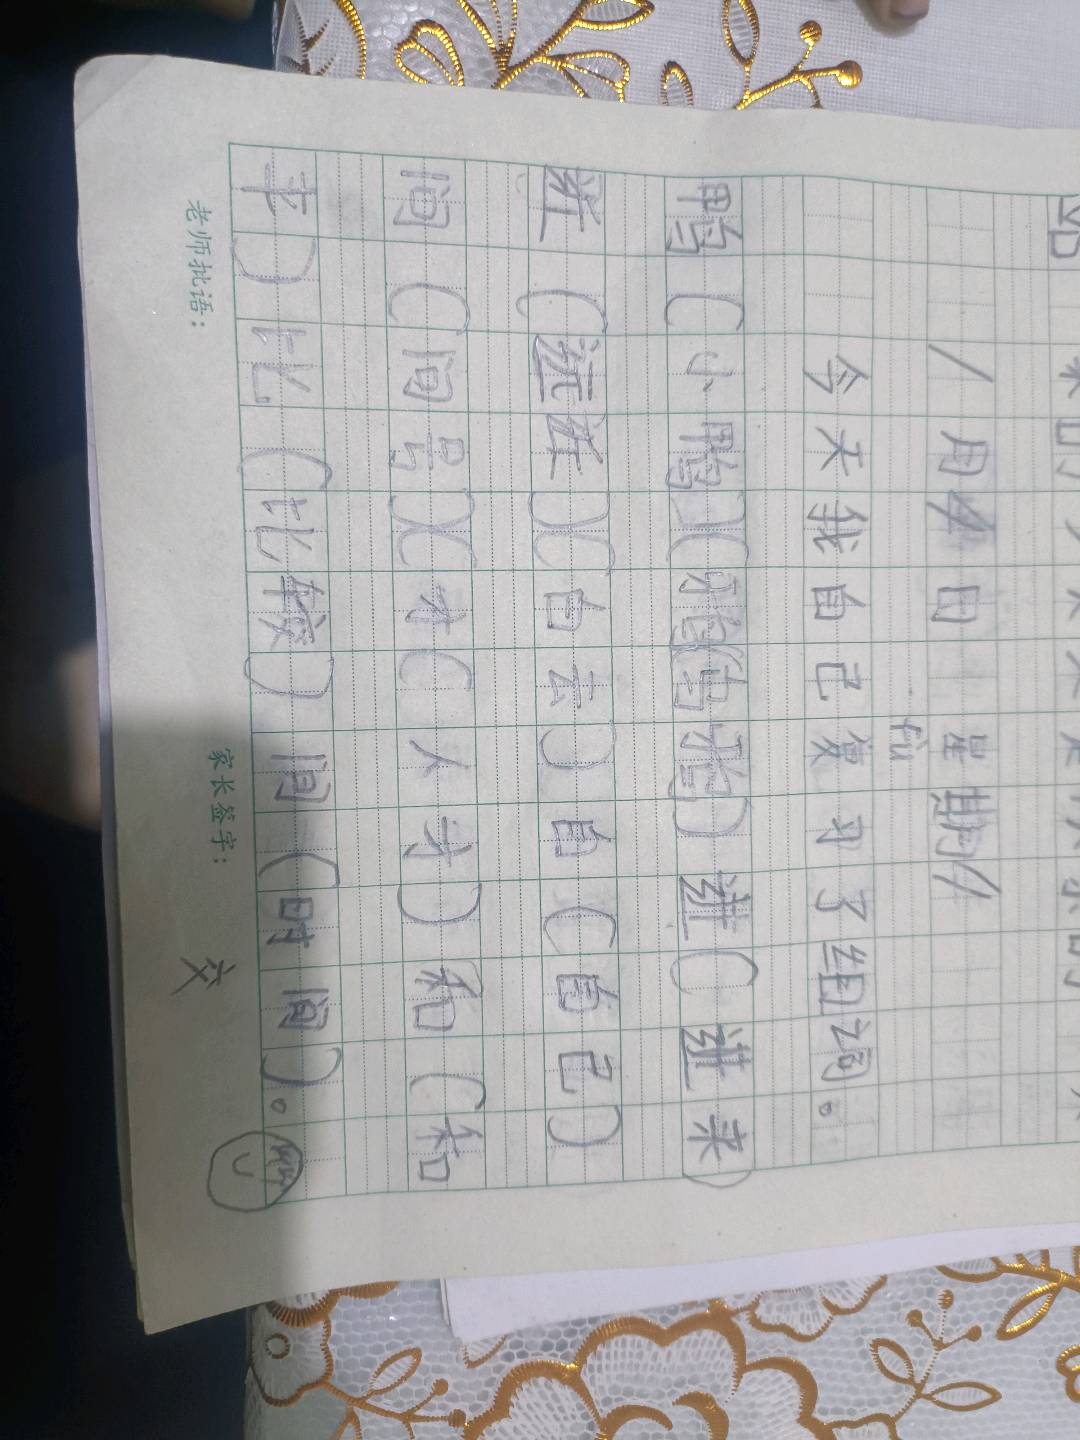 1月4日 是期4
fù
今天我自己复习了组词。
鸭(小鸭)( )进(进来)
(白去)自(自己)
问(问号)(才(人才)和(和
平)比(比较)间(时间)。
老师批语: 家长签字: 交